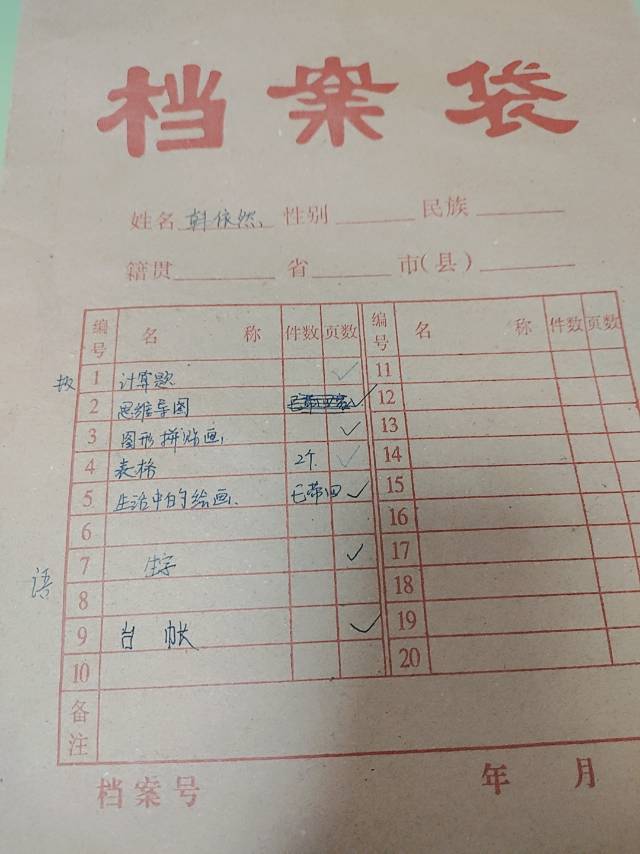 档案袋
姓名 韩依然 性别 民族
籍贯 省 市(县)
编号 名 称 件数 页数 编号 名 称 件数 页数
1 计算题 ✓ 11
2 思维导图 ✓ 12
3 图形拼贴画 ✓ 13
4 表格 2个 ✓ 14
5 生活中的绘画 已带回 ✓ 15
6 16
7 生字 ✓ 17
语
8 18
9 台帐 ✓ 19
10 20
备注
档案号 年 月